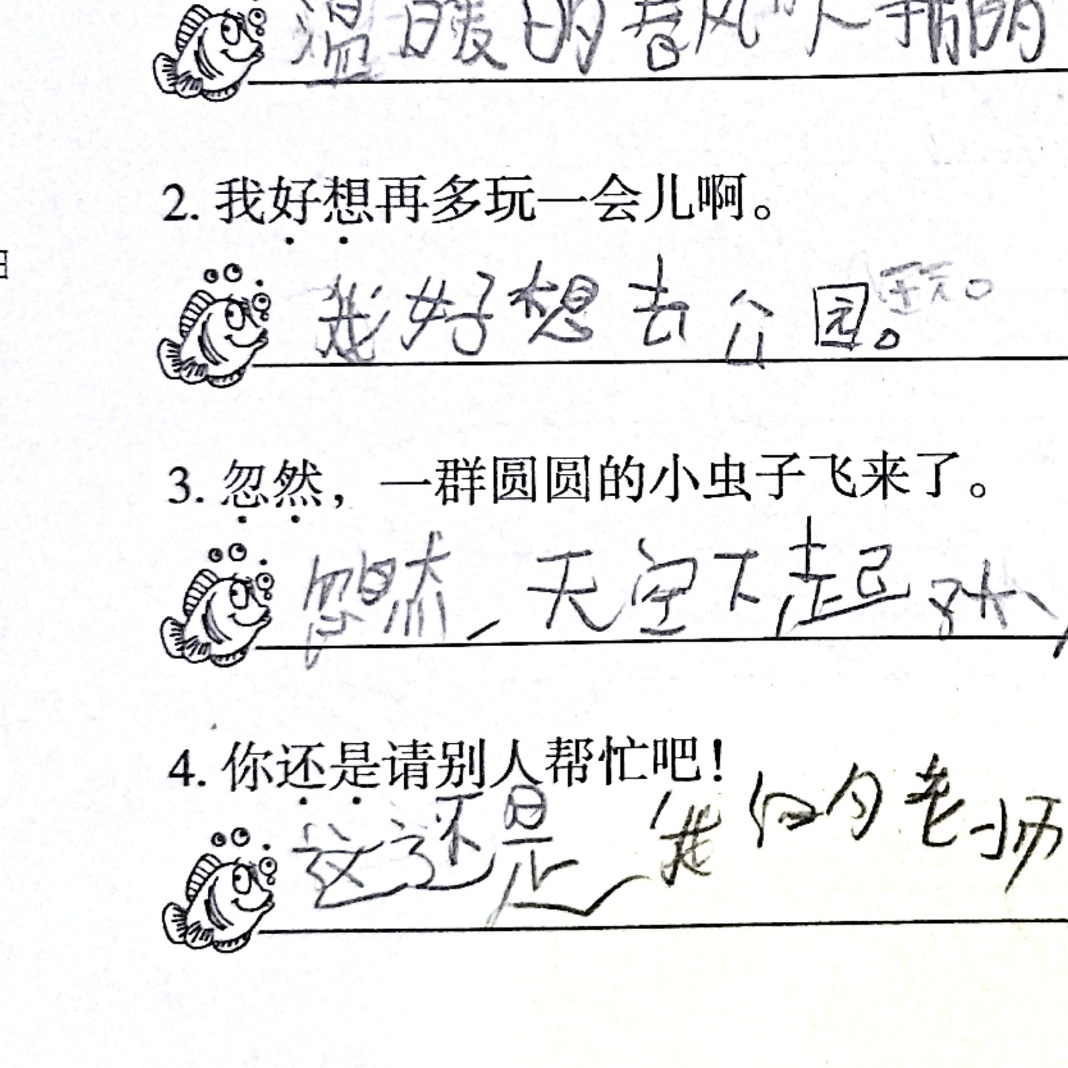 温暖的春风
2. 我好想再多玩一会儿啊。
我好想去公园。玩。
3. 忽然，一群圆圆的小虫子飞来了。
忽然，天空下起
4. 你还是请别人帮忙吧！
这还是我们的老师